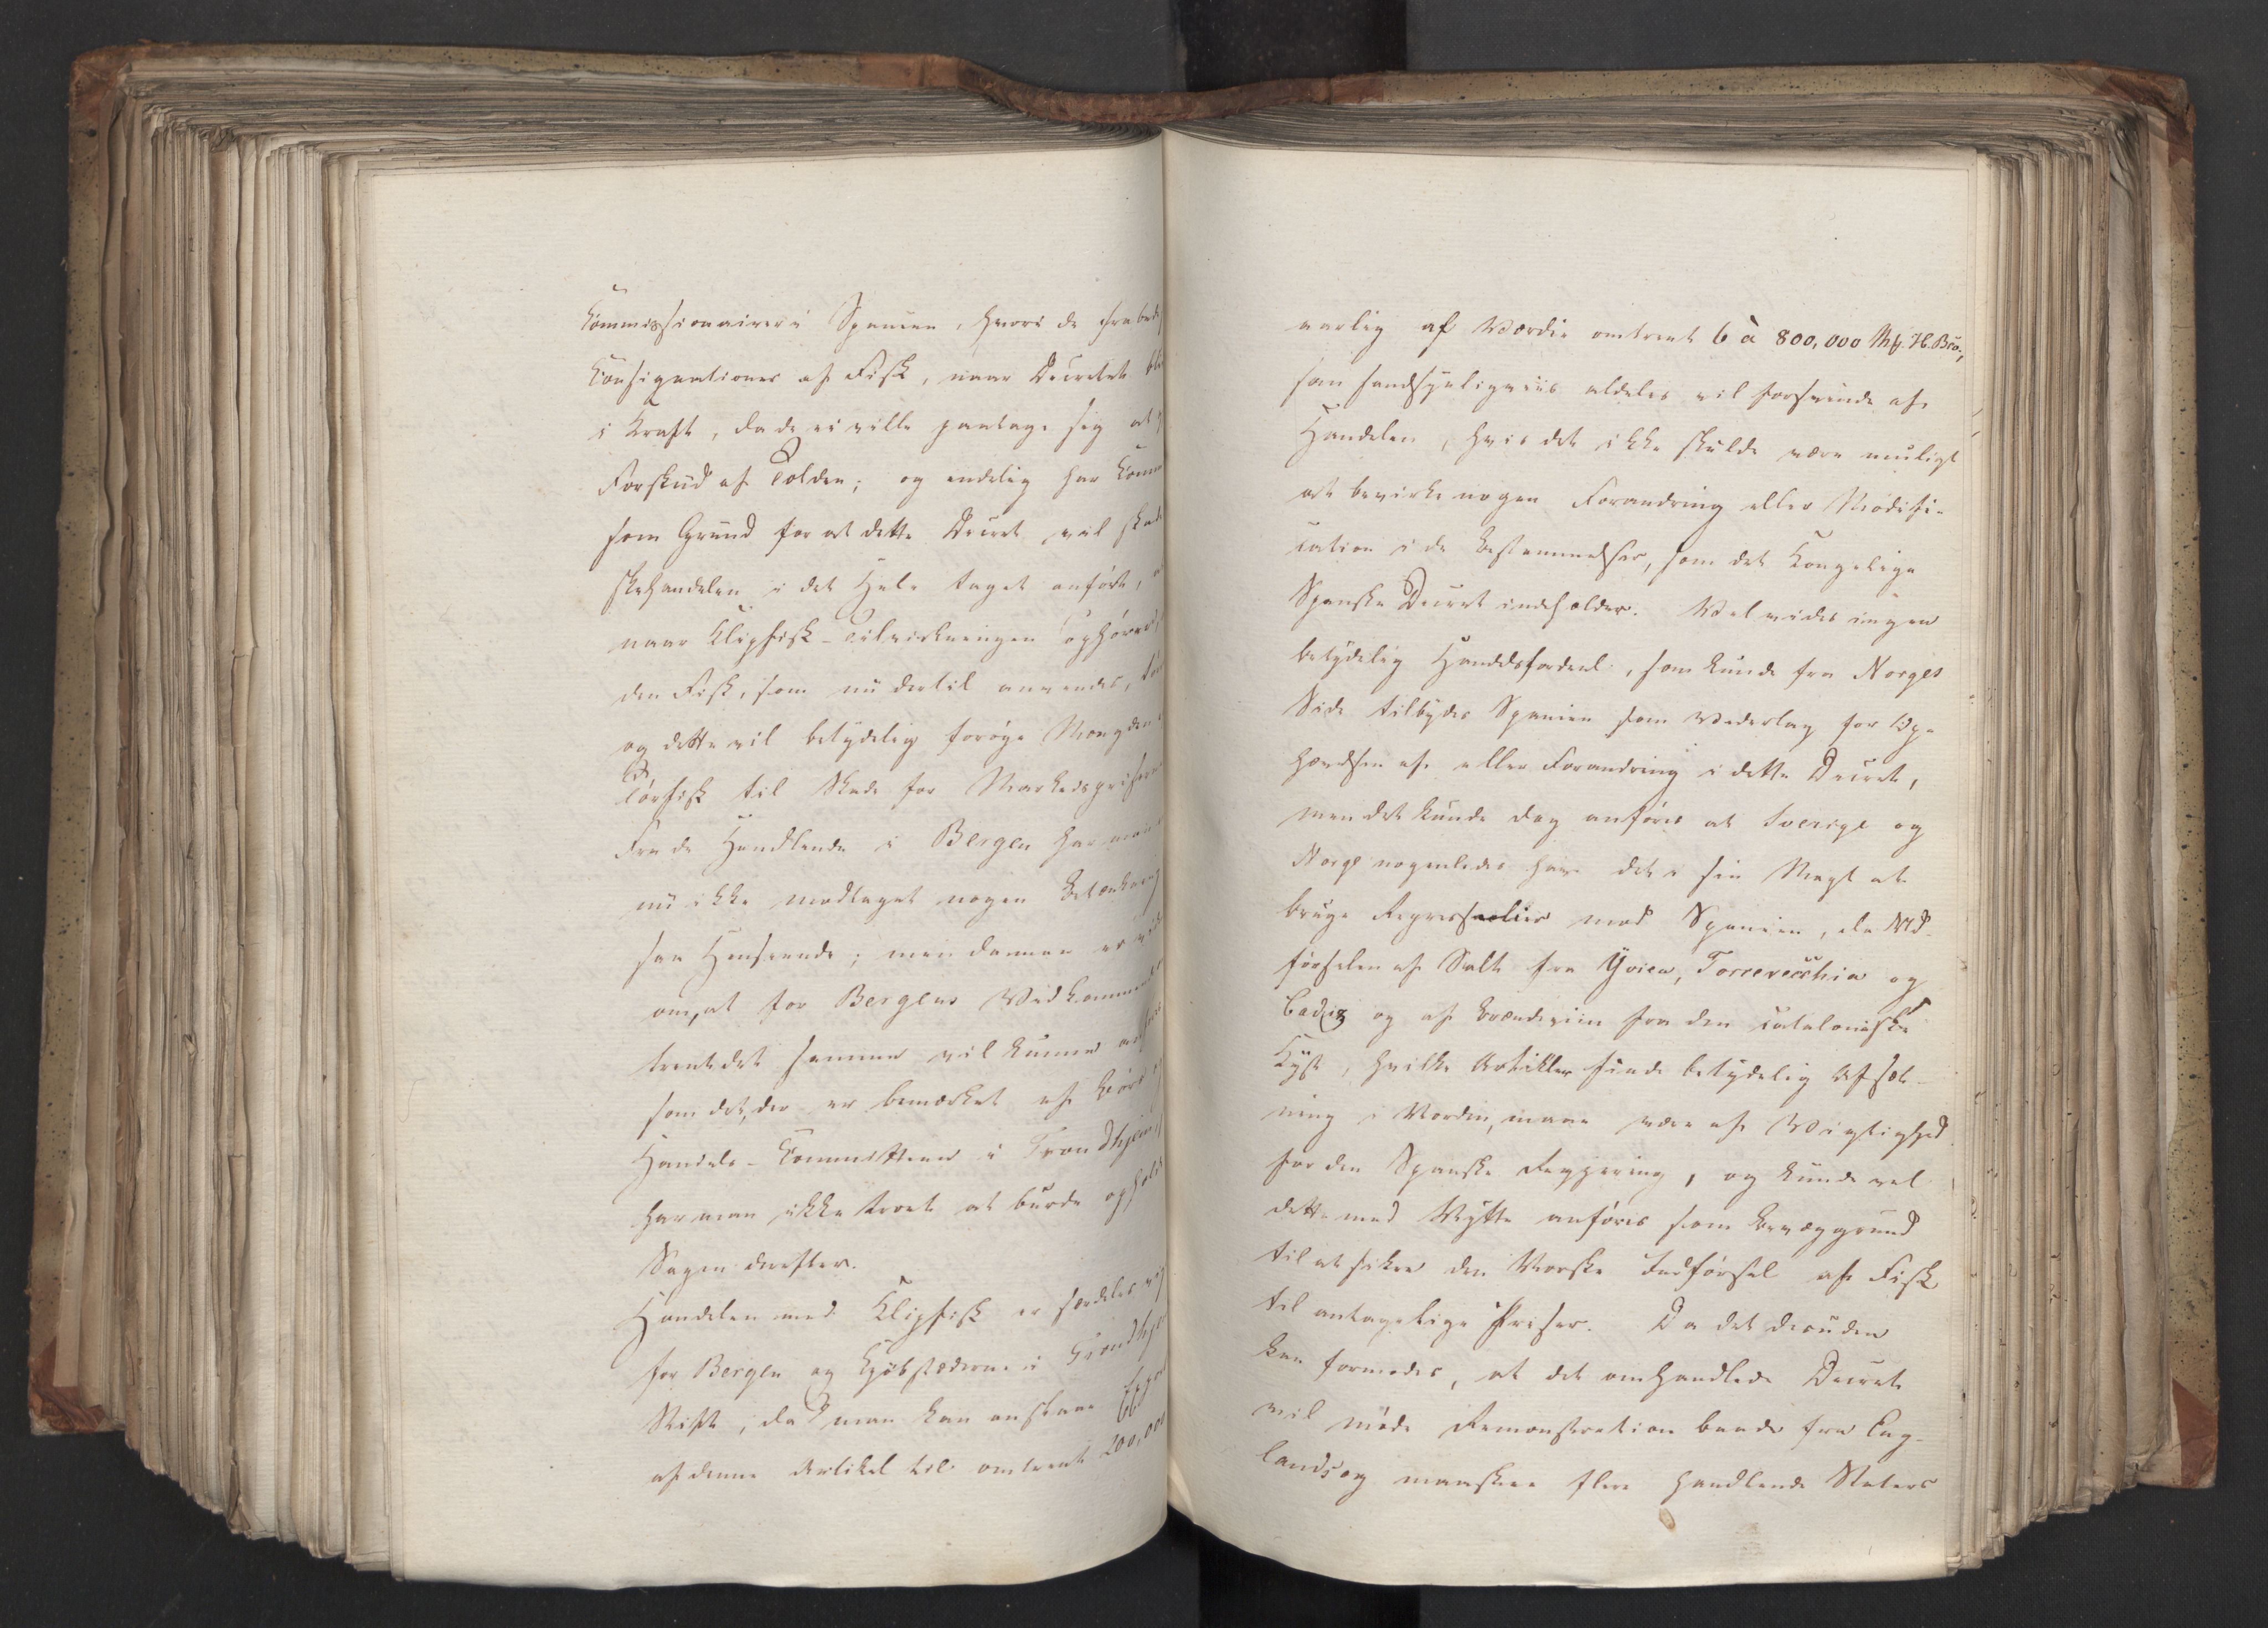 Commissionairer i Spanien, hvori de frabede
Consignationer af Fisk, naar Decretet bli
i Kraft, da de ei ville paatage sig at
Forskud af Tolden; og endelig har Comm
som Grund for at dette Decret vil skad
skehandelen i det Hele taget anført,
naar Klipfisk-Tilvirkningen ophører,
den Fisk, som nu dertil anvendes, tør
og dette vil betydelig forøge Mængden
Tørfisk til Skade for Markedspriserne
Fra de Handlende i Bergen har man
nu ikke modtaget nogen Betænkning
saa Henseende; men da man er vis
om, at for Bergens Vedkommende
trent det samme vil kunne anføres
som det, der er bemærket af Børs
Handels-Committeen i Trondhjem,
har man ikke troet at burde ophold
Sagen derefter.
Handelen med Klipfisk er særdeles vig
for Bergen og Kjøbstæderne i Trondhje
Stift, da man kan anslaae Expor
af denne Artikel til omtrent 200,000
aarlig af Værdie omtrent 6 à 800,000 Mk. H. Bco.,
som sandsynligviis aldeles vil forsvinde af
Handelen, hvis det ikke skulde være muligt
at bevirke nogen Forandring eller Modifi-
cation i de Bestemmelser, som det Kongelige
Spanske Decret indeholder. Vel vides ingen
betydelig Handelsfordeel, som kunde fra Norges
Side tilbydes Spanien som Vederlag for Op-
hævelsen af eller Forandring i dette Decret,
men det kunde dog anføres at Sverige og
Norge nogenledes have det i sin Magt at
bruge Repressalier mod Spanien, da Ud-
førselen af Salt fra Yvica, Torrevecchia og
Cadiz og af Brændeviin fra den cataloniske
Kyst, hvilke Artikler finde betydelig Afsæt-
ning i Norden, maae være af Vigtighed
for den Spanske Regjering, og kunde vel
dette med Nytte anføres som Bevæggrund
til at sikre den Norske Indførsel af Fisk
til antagelige Priser. Da det desuden
kan formodes, at det omhandlede Decret
vil møde Remonstration baade fra Eng-
lands og maaskee flere handlende Staters